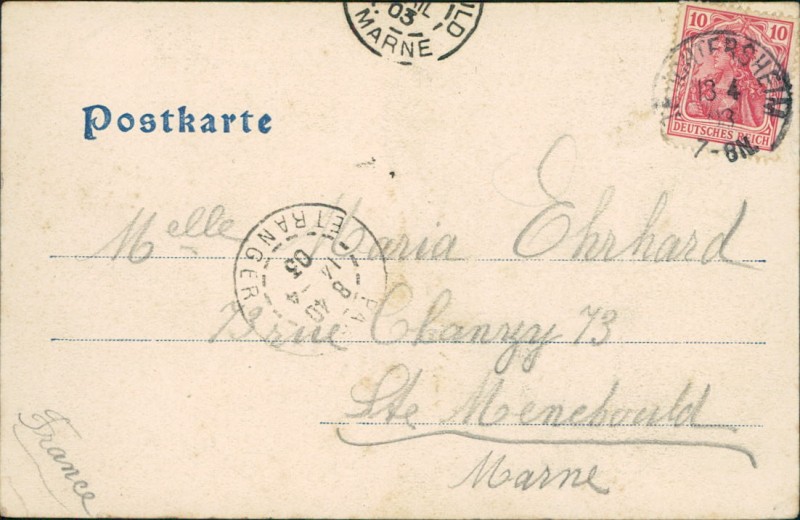 03
MARNE
10 10
DEUTSCHES REICH
13 4
03
7-8N.
Postkarte
Melle Maria Ehrhard
ETRANGER
8 40
14 - 4
03
73 rue Chanzy 73
Ste Menehould
Marne
France